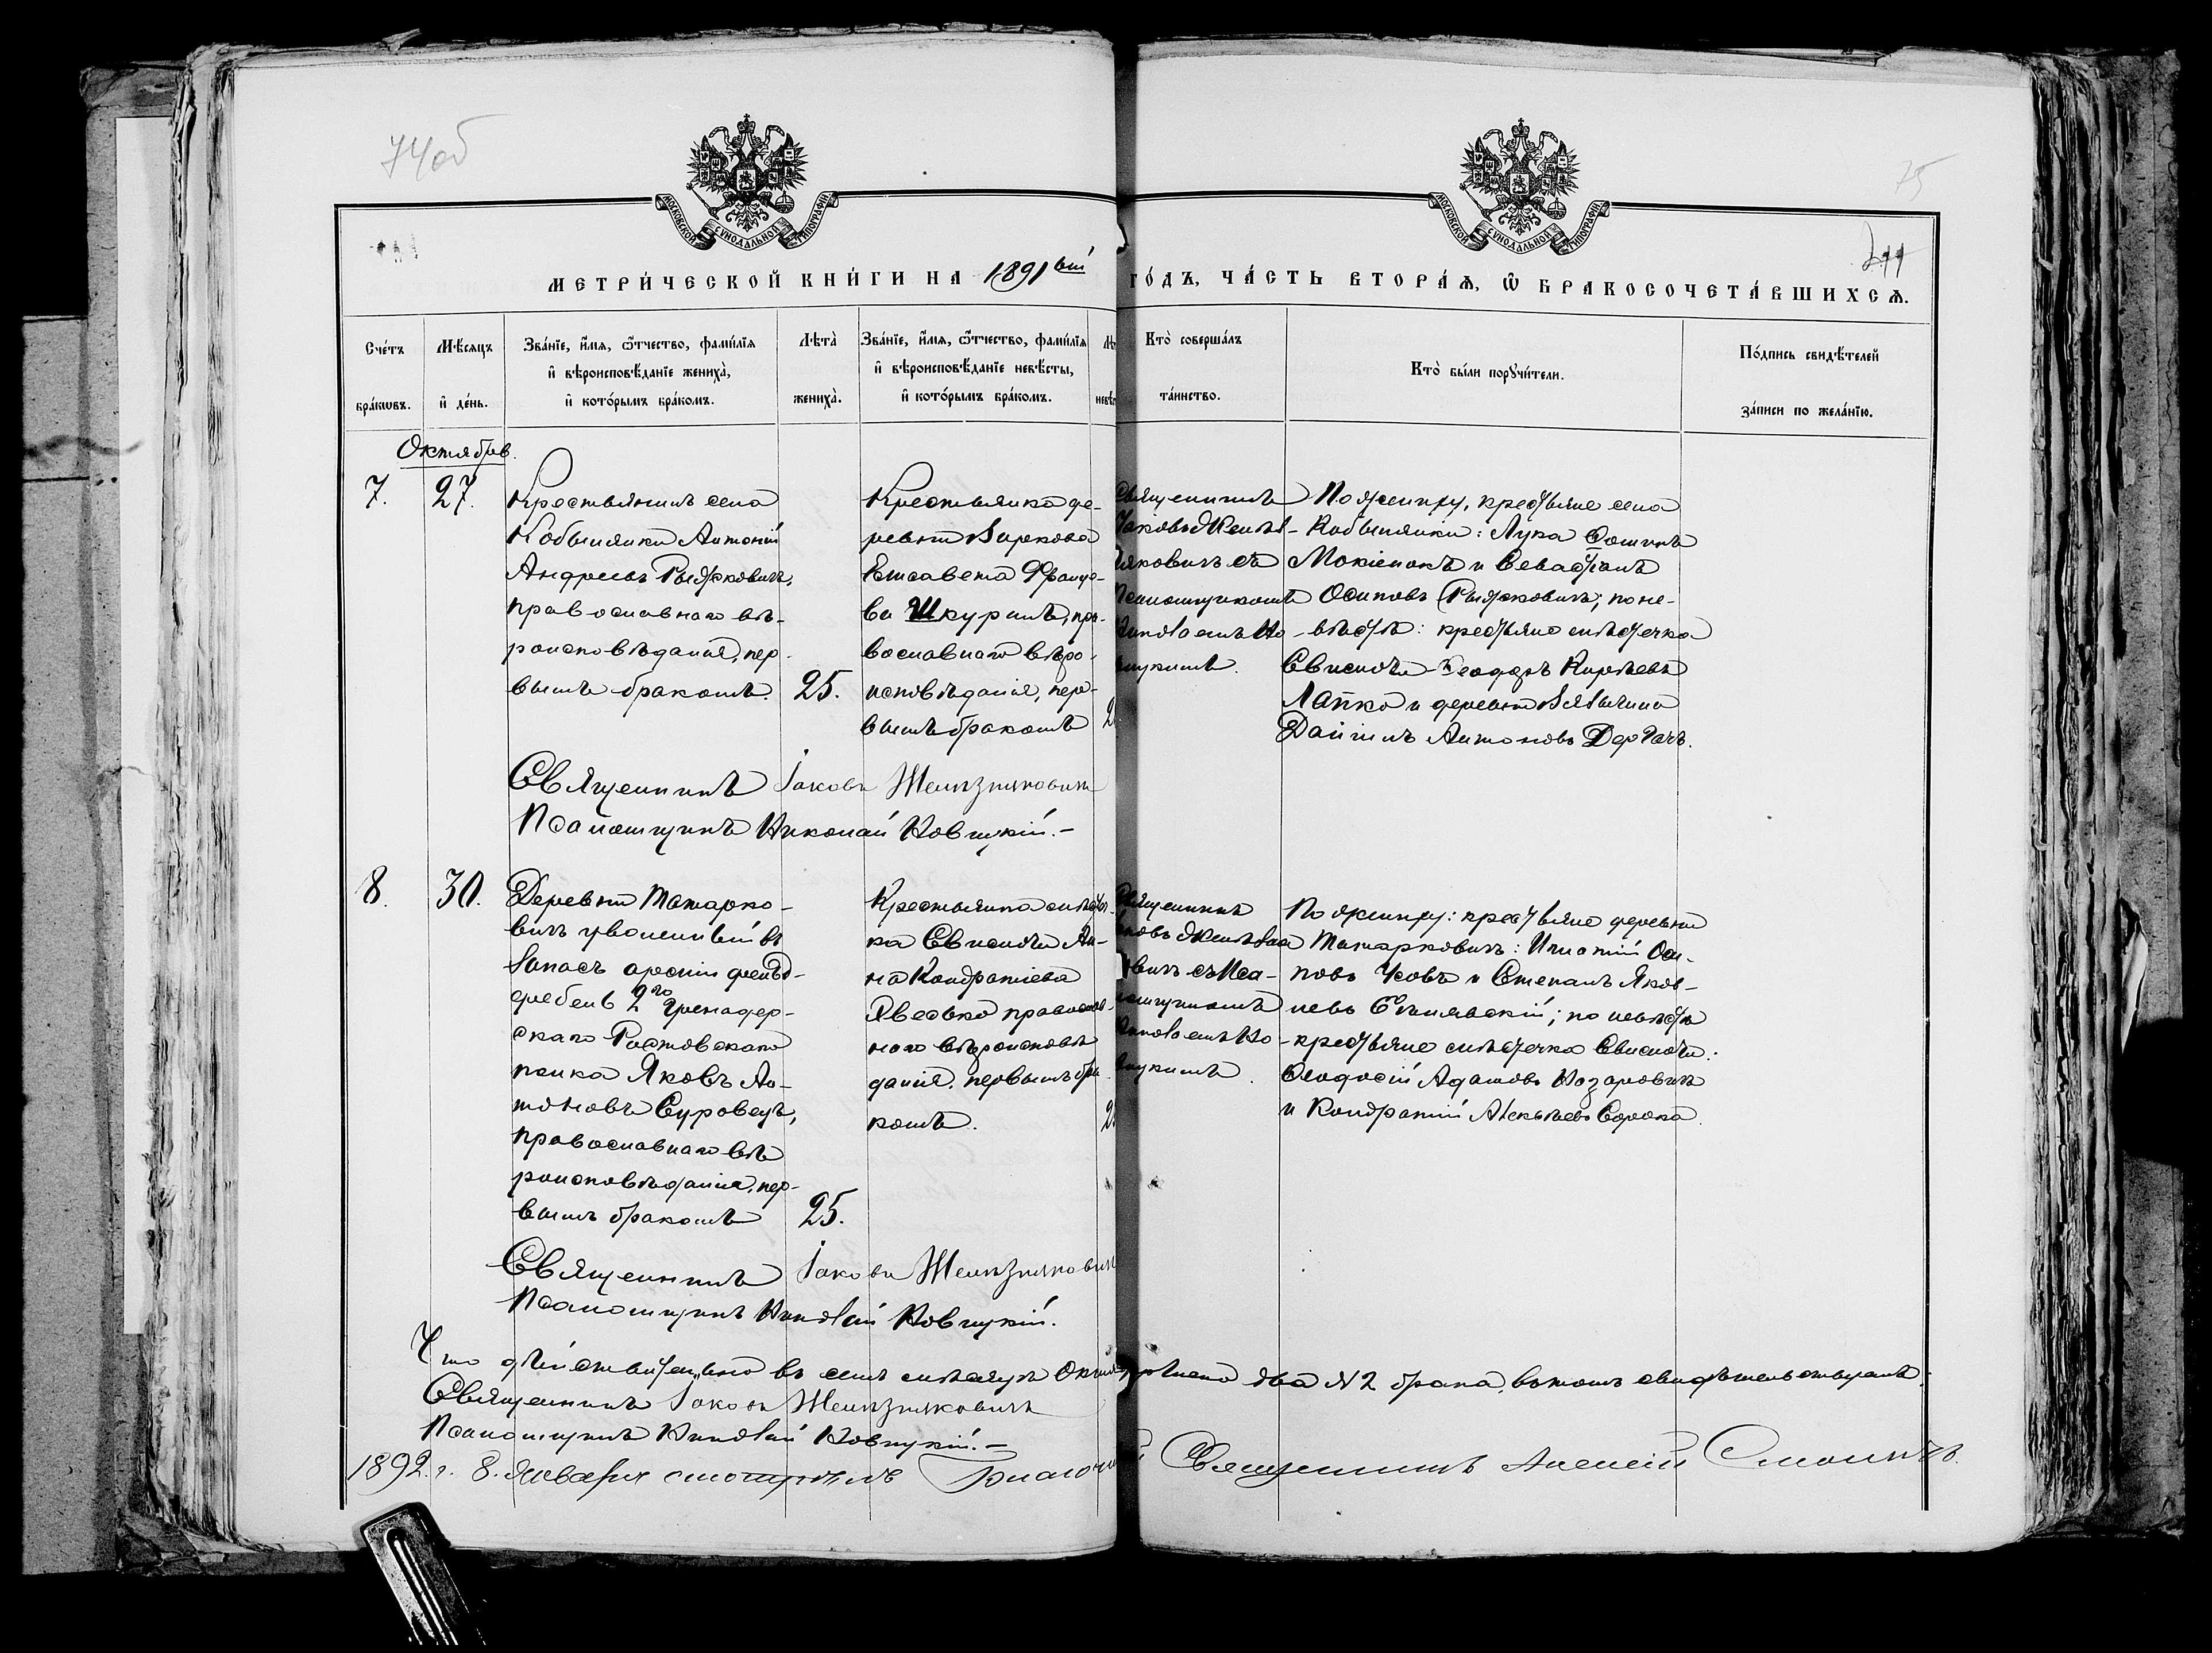 74об
75
МОСКОВСКОЙ СУНОДАЛЬНОЙ ТИПОГРАФІИ
МОСКОВСКОЙ СУНОДАЛЬНОЙ ТИПОГРАФІИ
МЕТРИ́ЧЕСКОЙ КНИ́ГИ НА 1891ый ГО́ДЪ, ЧА́СТЬ ВТОРА́Ѧ, Ѽ БРАКОСОЧЕТА́ВШИХСѦ.
Сче́тъ бра́кωвъ.
Мѣ́сѧцъ и҆ де́нь.
Зва́нїе, и҆́мѧ, ѻ҆́тчество, фамилїѧ и҆ вѣроисповѣ́данїе жениха̀, и҆ кото́рымъ бра́комъ.
Лѣта̀ жениха̀.
Зва́нїе, и҆́мѧ, ѻ҆́тчество, фамилїѧ и҆ вѣроисповѣ́данїе невѣ́сты, и҆ кото́рымъ бра́комъ.
Кто̀ соверша́лъ та́инство.
Кто̀ бы́ли порꙋчи́тели.
По́дпись свидѣ́телей за́писи по жела́нїю.
Октябрь.
7.
27.
Крестьянинъ села
Кобылянки Антоній
Андреевъ Рыжковичъ,
православнаго вѣ-
роисповѣданія, пер-
вымъ бракомъ.
25.
Крестьянка де-
ревни Заркова
Елисавета
ва Шкурипъ, пра-
вославнаго вѣро-
исповѣданія, пер-
вымъ бракомъ
2
Священникъ
Іаковъ Желѣз-
няковичъ съ
Псаломщикомъ
Николаемъ Но-
вицкимъ.
По жениху, крестьяне села
Кобылянки: Лука Фоминъ
Мокіенокъ и Севастіанъ
Осиповъ Рыжковичъ; по не-
вѣстѣ: крестьяне мѣстечка
Свислочи Ѳеодоръ Кирѣевъ
Лапко и деревни Вязычина
Даніилъ Антоновъ Дергачъ.
Священникъ Іаковъ Желѣзняковичъ
Псаломщикъ Николай Новицкій.-
8.
30.
Деревни Татарко-
вичъ уволенный въ
запасъ арміи фельд-
фебель 2го Гренадер-
скаго Ростовскаго
полка Яковъ Ан-
тоновъ Суровецъ,
православнаго вѣ
роисповѣданія, пер-
вымъ бракомъ
25.
Крестьянка мѣстеч-
ка Свислочи Ан-
на Кондратіева
Явсько православ-
наго вѣроисповѣ
данія, первымъ бра
комъ.
2
Священникъ
Іаковъ Желѣзня
ковичъ съ Пса-
ломщикомъ
Николаемъ Но-
вицкимъ.
По жениху: крестьяне деревни
Татарковичъ: Игнатій Оси-
повъ Усовъ и Степанъ Яков-
левъ Сѣнявскій; по невѣстѣ
крестьяне мѣстечка Свислочи:
Ѳеодосій Адамовъ Назаровичъ
и Кондратій Алексѣевъ Сорока.
Священникъ Іаковъ Желѣзняковичъ
Псаломщикъ Николай Новицкій.
Что дѣйствительно въ семъ мѣсяцѣ Октябрѣ два № 2 брака, въ томъ свидѣтельствуемъ:
Священникъ Іаковъ Желѣзняковичъ
Псаломщикъ Николай Новицкій.-
1892. г. 8. Января смотрѣлъ Благочинный Священникъ Алексій Смоличъ.